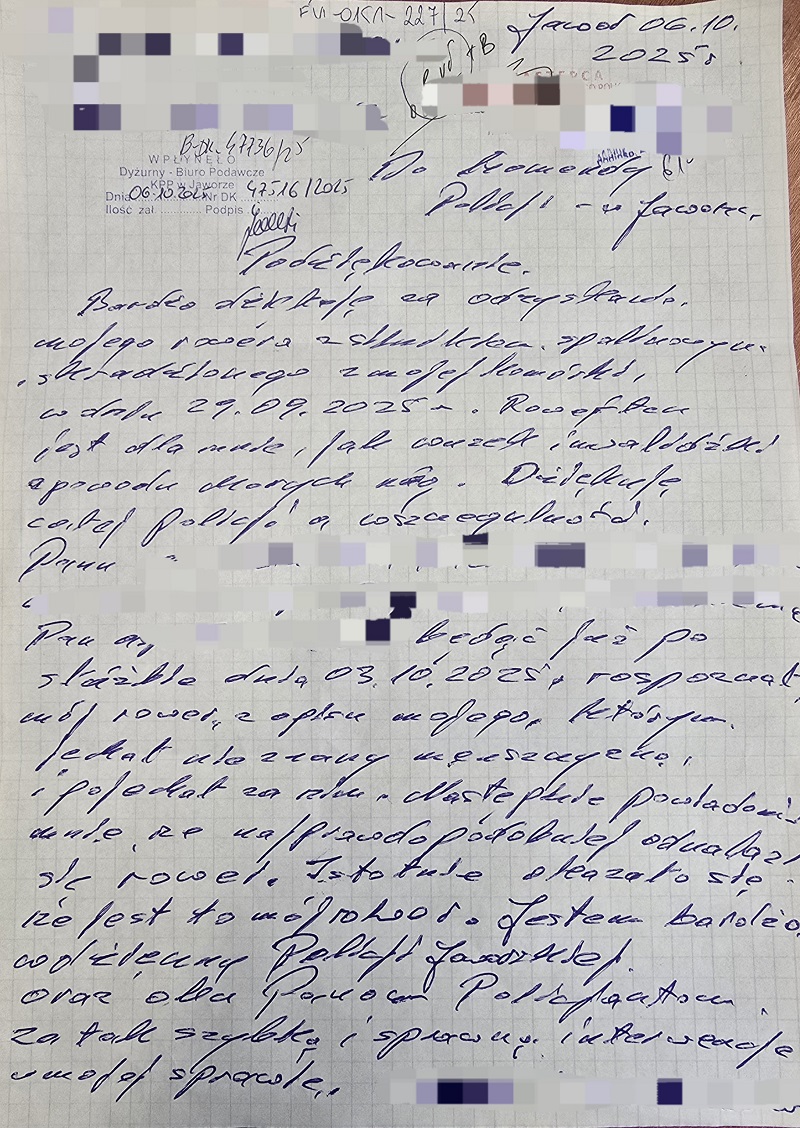 FVI-OKA-227/25
Jawor 06.10.
2025r
B-DK-47736/25
WPŁYNĘŁO
Dyżurny - Biuro Podawcze
KPP w Jaworze
Dnia 06.10.2025 Nr DK 47516/2025
Ilość zał. Podpis
Do Komendy
Policji - w Jaworze,
Podziękowanie.
Bardzo dziękuję za odzyskanie.
mojego roweru z silnikiem. spalinowym.
skradzionego z mojej komórki,
w dniu 29.09.2025 r. Rower ten
jest dla mnie, jak wózek inwalidzki
z powodu chorych nóg. Dziękuję
całej policji a w szczególności.
Panu
Pan
będąc już po
służbie dnia 03.10.2025r, rospoznał
mój rower, z opisu mojego, którym.
jechał nie znany męszczyzna,
i pojechał za nim. Następnie powiadomił
mnie, że najprawdopodobniej odnalazł
się rower. Istotnie okazało się
że jest to mój rower. Jestem bardzo
wdzięczny Policji Jaworskiej.
oraz obu Panom Policjantom.
za tak szybką i sprawną interwencję
w mojej sprawie.